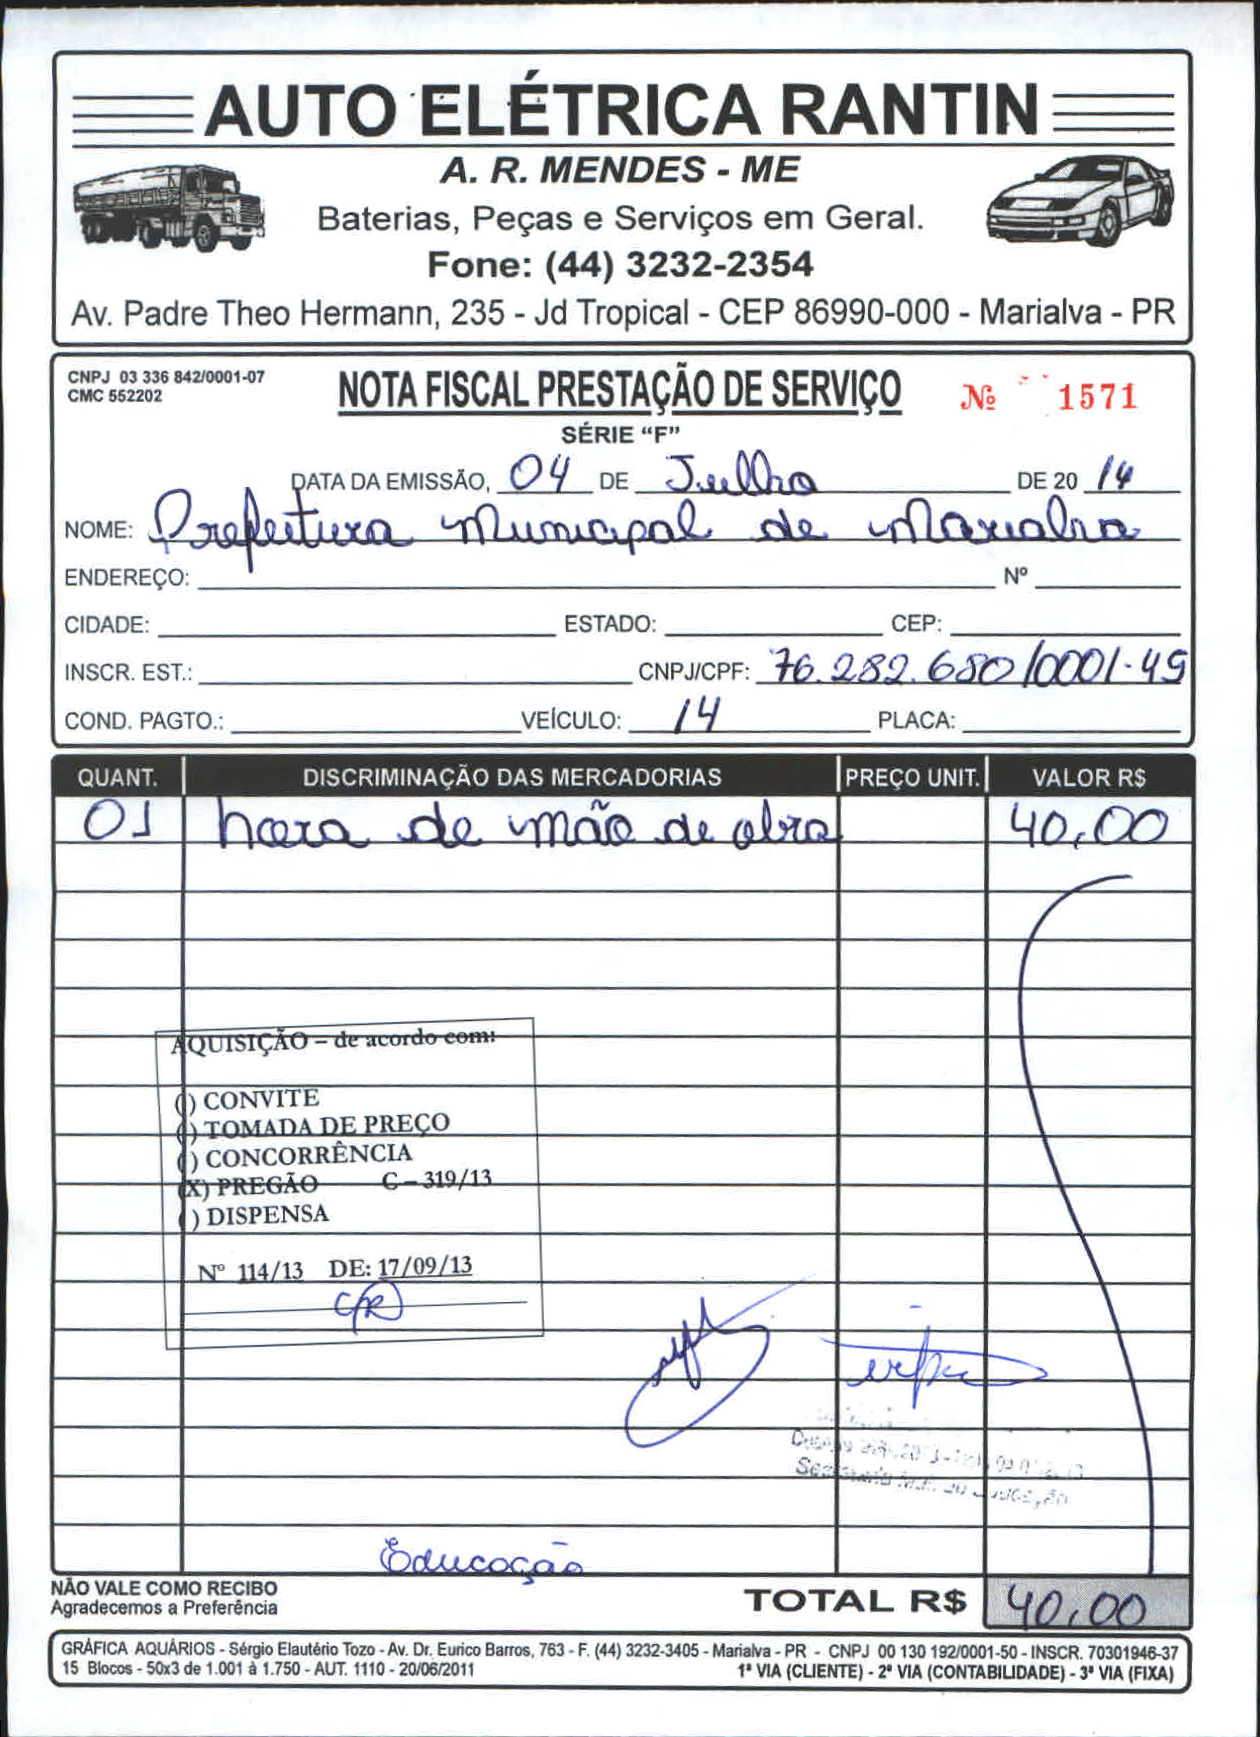 AUTO ELÉTRICA RANTIN
A. R. MENDES - ME
Baterias, Peças e Serviços em Geral.
Fone: (44) 3232-2354
Av. Padre Theo Hermann, 235 - Jd Tropical - CEP 86990-000 - Marialva - PR
CNPJ 03 336 842/0001-07
CMC 552202
NOTA FISCAL PRESTAÇÃO DE SERVIÇO
Nº 1571
SÉRIE “F”
DATA DA EMISSÃO, 04 DE Julho DE 20 14
NOME: Prefeitura Municipal de Marialva
ENDEREÇO: Nº
CIDADE: ESTADO: CEP:
INSCR. EST.: CNPJ/CPF: 76.282.680/0001-49
COND. PAGTO.: VEÍCULO: 14 PLACA:
QUANT. DISCRIMINAÇÃO DAS MERCADORIAS PREÇO UNIT. VALOR R$
01 hora de mão de obra 40,00
AQUISIÇÃO – de acordo com:
( ) CONVITE
( ) TOMADA DE PREÇO
( ) CONCORRÊNCIA
(X) PREGÃO C – 319/13
( ) DISPENSA
Nº 114/13 DE: 17/09/13
Educação
NÃO VALE COMO RECIBO
Agradecemos a Preferência
TOTAL R$ 40,00
GRÁFICA AQUÁRIOS - Sérgio Elautério Tozo - Av. Dr. Eurico Barros, 763 - F. (44) 3232-3405 - Marialva - PR - CNPJ 00 130 192/0001-50 - INSCR. 70301946-37
15 Blocos - 50x3 de 1.001 à 1.750 - AUT. 1110 - 20/06/2011
1ª VIA (CLIENTE) - 2ª VIA (CONTABILIDADE) - 3ª VIA (FIXA)